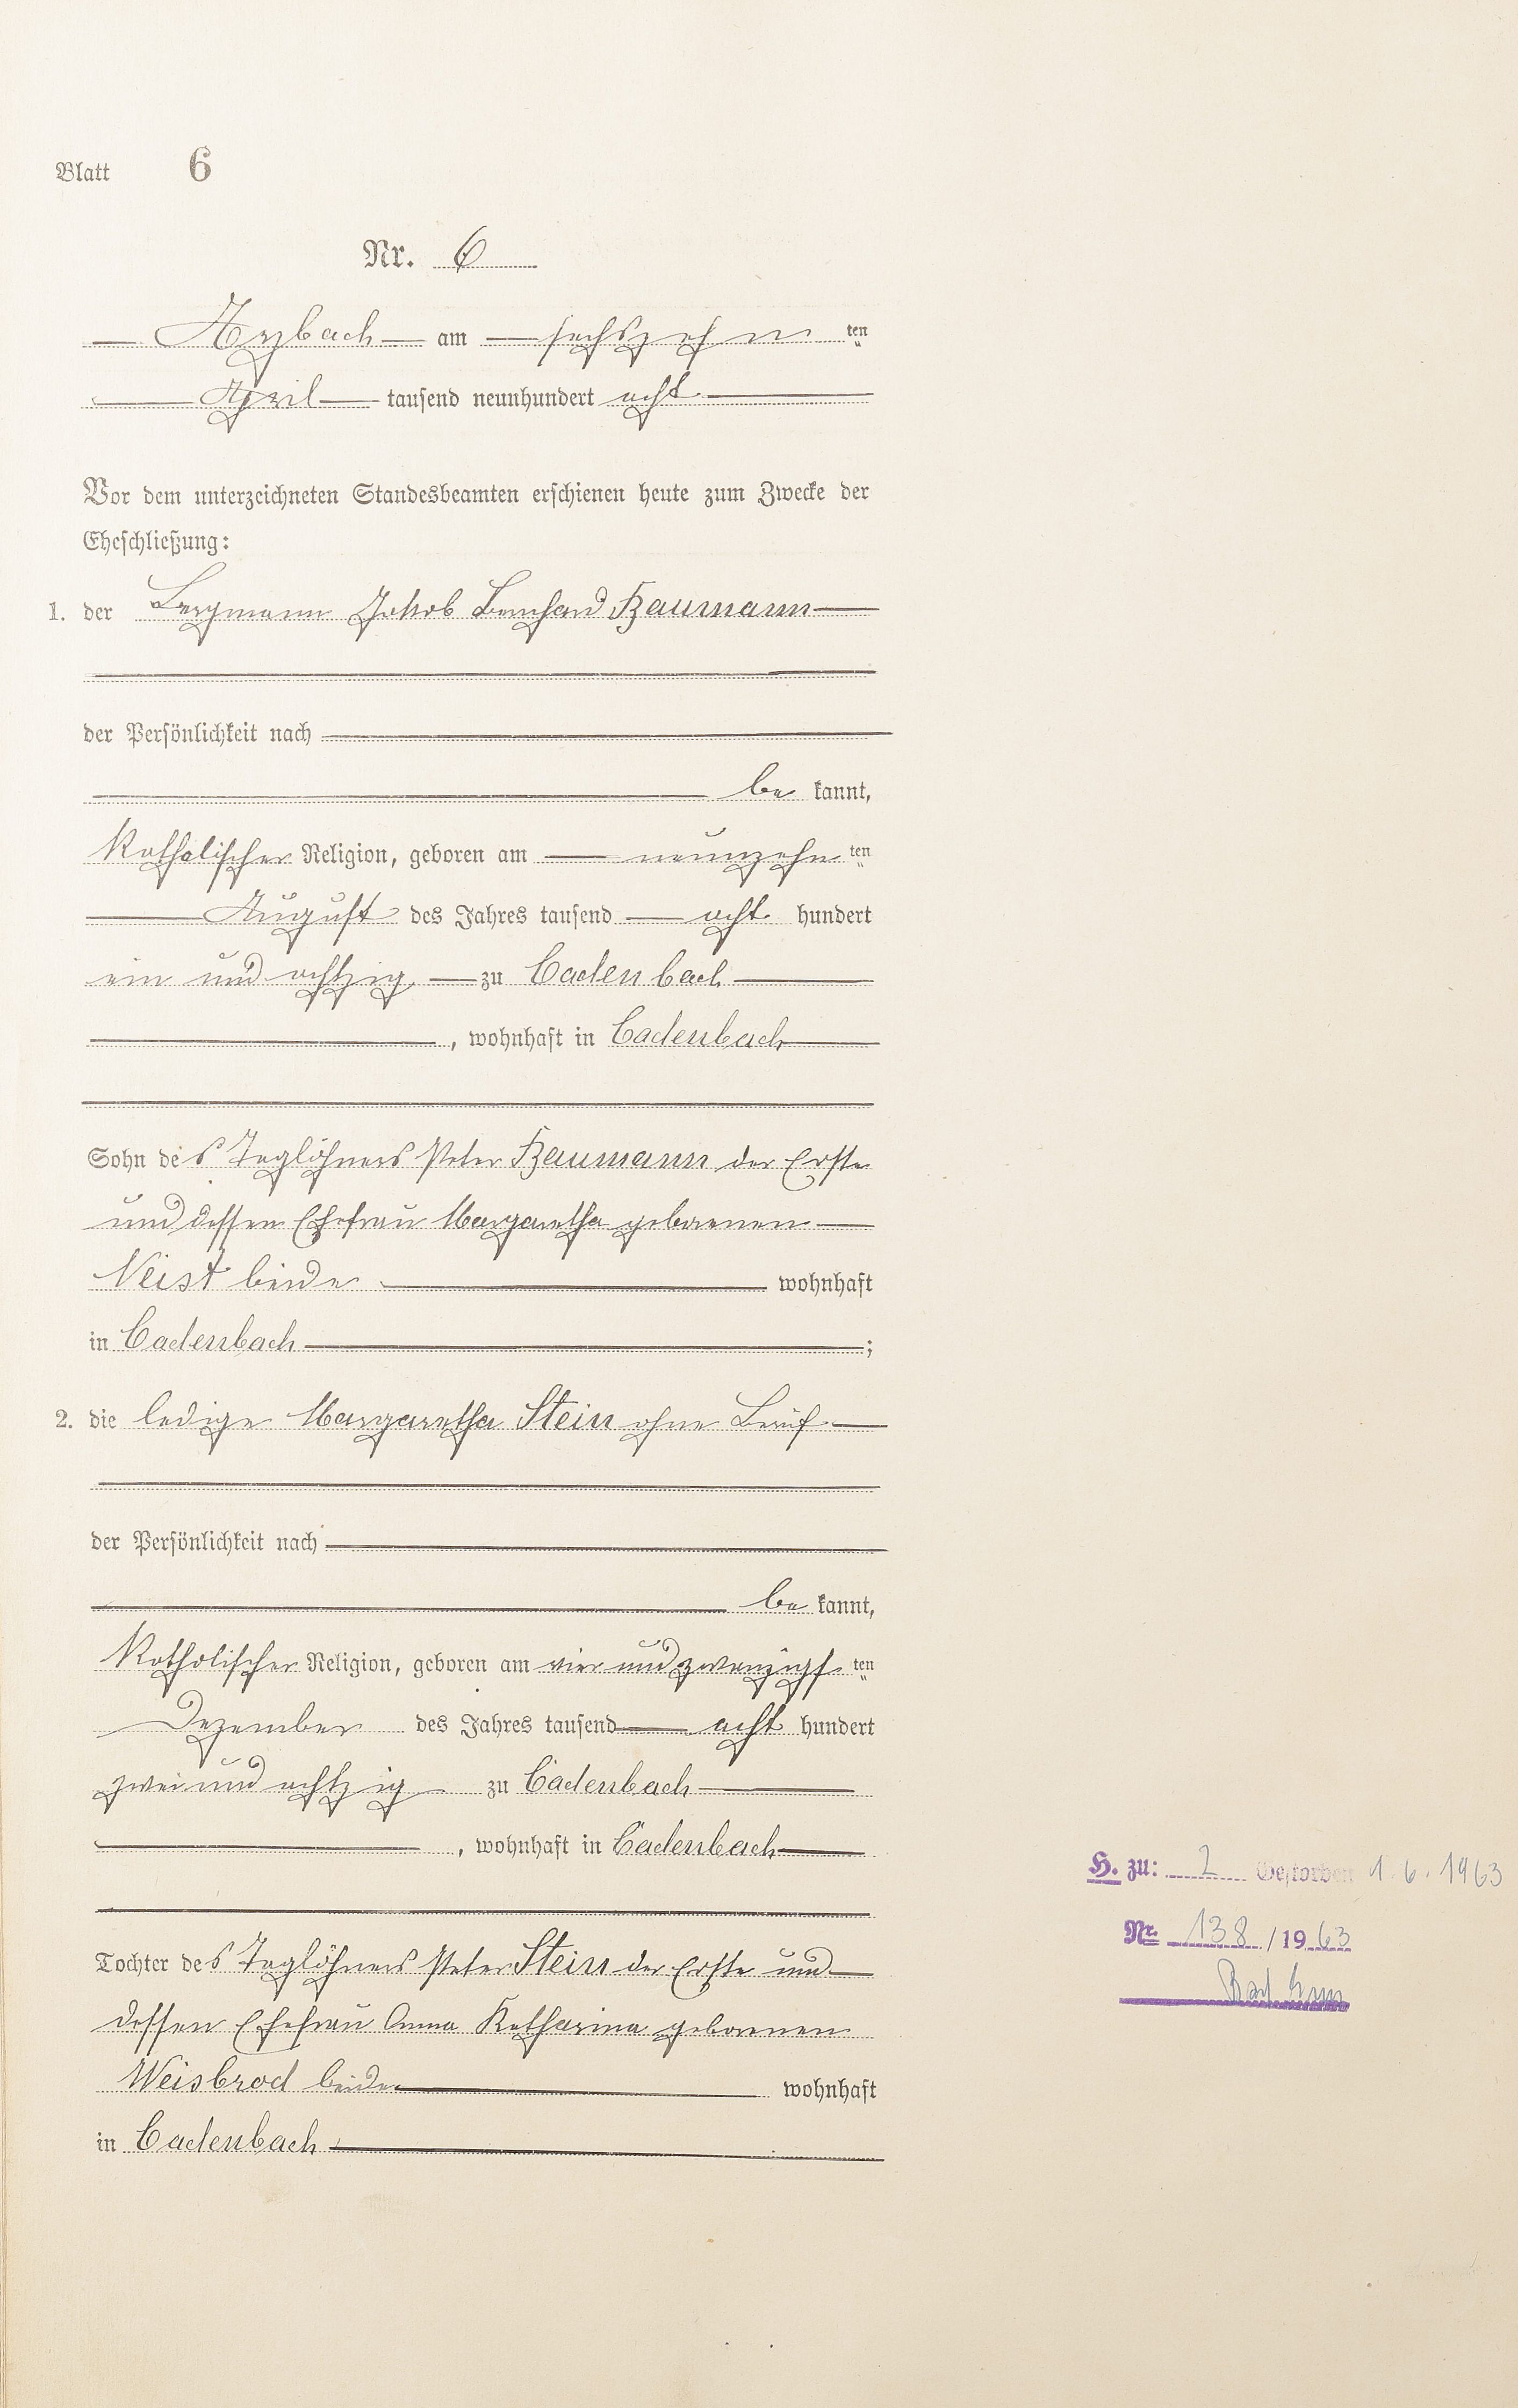 Blatt 6
Nr. 6
Arzbach am sechszehn ten
April tausend neunhundert acht
Vor dem unterzeichneten Standesbeamten erschienen heute zum Zwecke der
Eheschließung:
1. der Bergmann Jakob Bernhard Baumann
der Persönlichkeit nach
be kannt,
Katholischer Religion, geboren am neunzehn ten
August des Jahres tausend acht hundert
ein und achtzig zu Cadenbach
, wohnhaft in Cadenbach
Sohn des Taglöhners Peter Baumann der Erste
und dessen Ehefrau Margaretha geborenen
Neist beide wohnhaft
in Cadenbach ;
2. die ledige Margaretha Stein ohne Beruf
der Persönlichkeit nach
be kannt,
Katholischer Religion, geboren am vier und zwanzigs ten
Dezember des Jahres tausend acht hundert
zwei und achtzig zu Cadenbach
, wohnhaft in Cadenbach
H. zu: 2 Gestorben 1.6.1963
Nr. 138/1963
Tochter des Taglöhners Peter Stein der Erste und
dessen Ehefrau Anna Katharina geborenen
Weisbrod beide wohnhaft
in Cadenbach